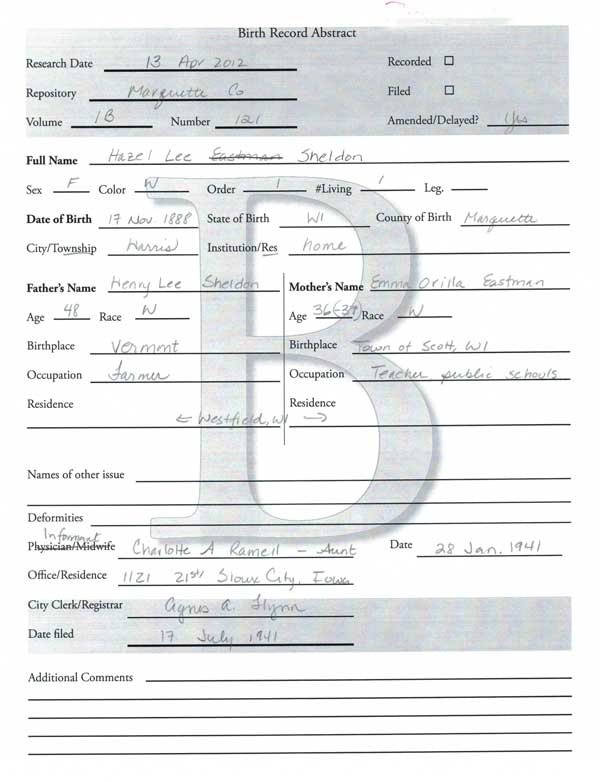 Birth Record Abstract
Research Date 13 Apr 2012 Recorded ☐
Repository Marquette Co Filed ☐
Volume 1B Number 121 Amended/Delayed? Yes
Full Name Hazel Lee Eastman Sheldon
Sex F Color W Order 1 #Living 1 Leg.
Date of Birth 17 Nov. 1888 State of Birth WI County of Birth Marquette
City/Township Harris Institution/Res home
Father's Name Henry Lee Sheldon Mother's Name Emma Orilla Eastman
Age 48 Race W Age 36 (-37) Race W
Birthplace Vermont Birthplace Town of Scott, WI
Occupation Farmer Occupation Teacher public schools
Residence Residence
← Westfield, WI →
Names of other issue
Deformities
Informant
Physician/Midwife Charlotte A Ramell - Aunt Date 28 Jan. 1941
Office/Residence 1121 21st Sioux City, Iowa
City Clerk/Registrar Agnes A. Flynn
Date filed 17 July 1941
Additional Comments
B